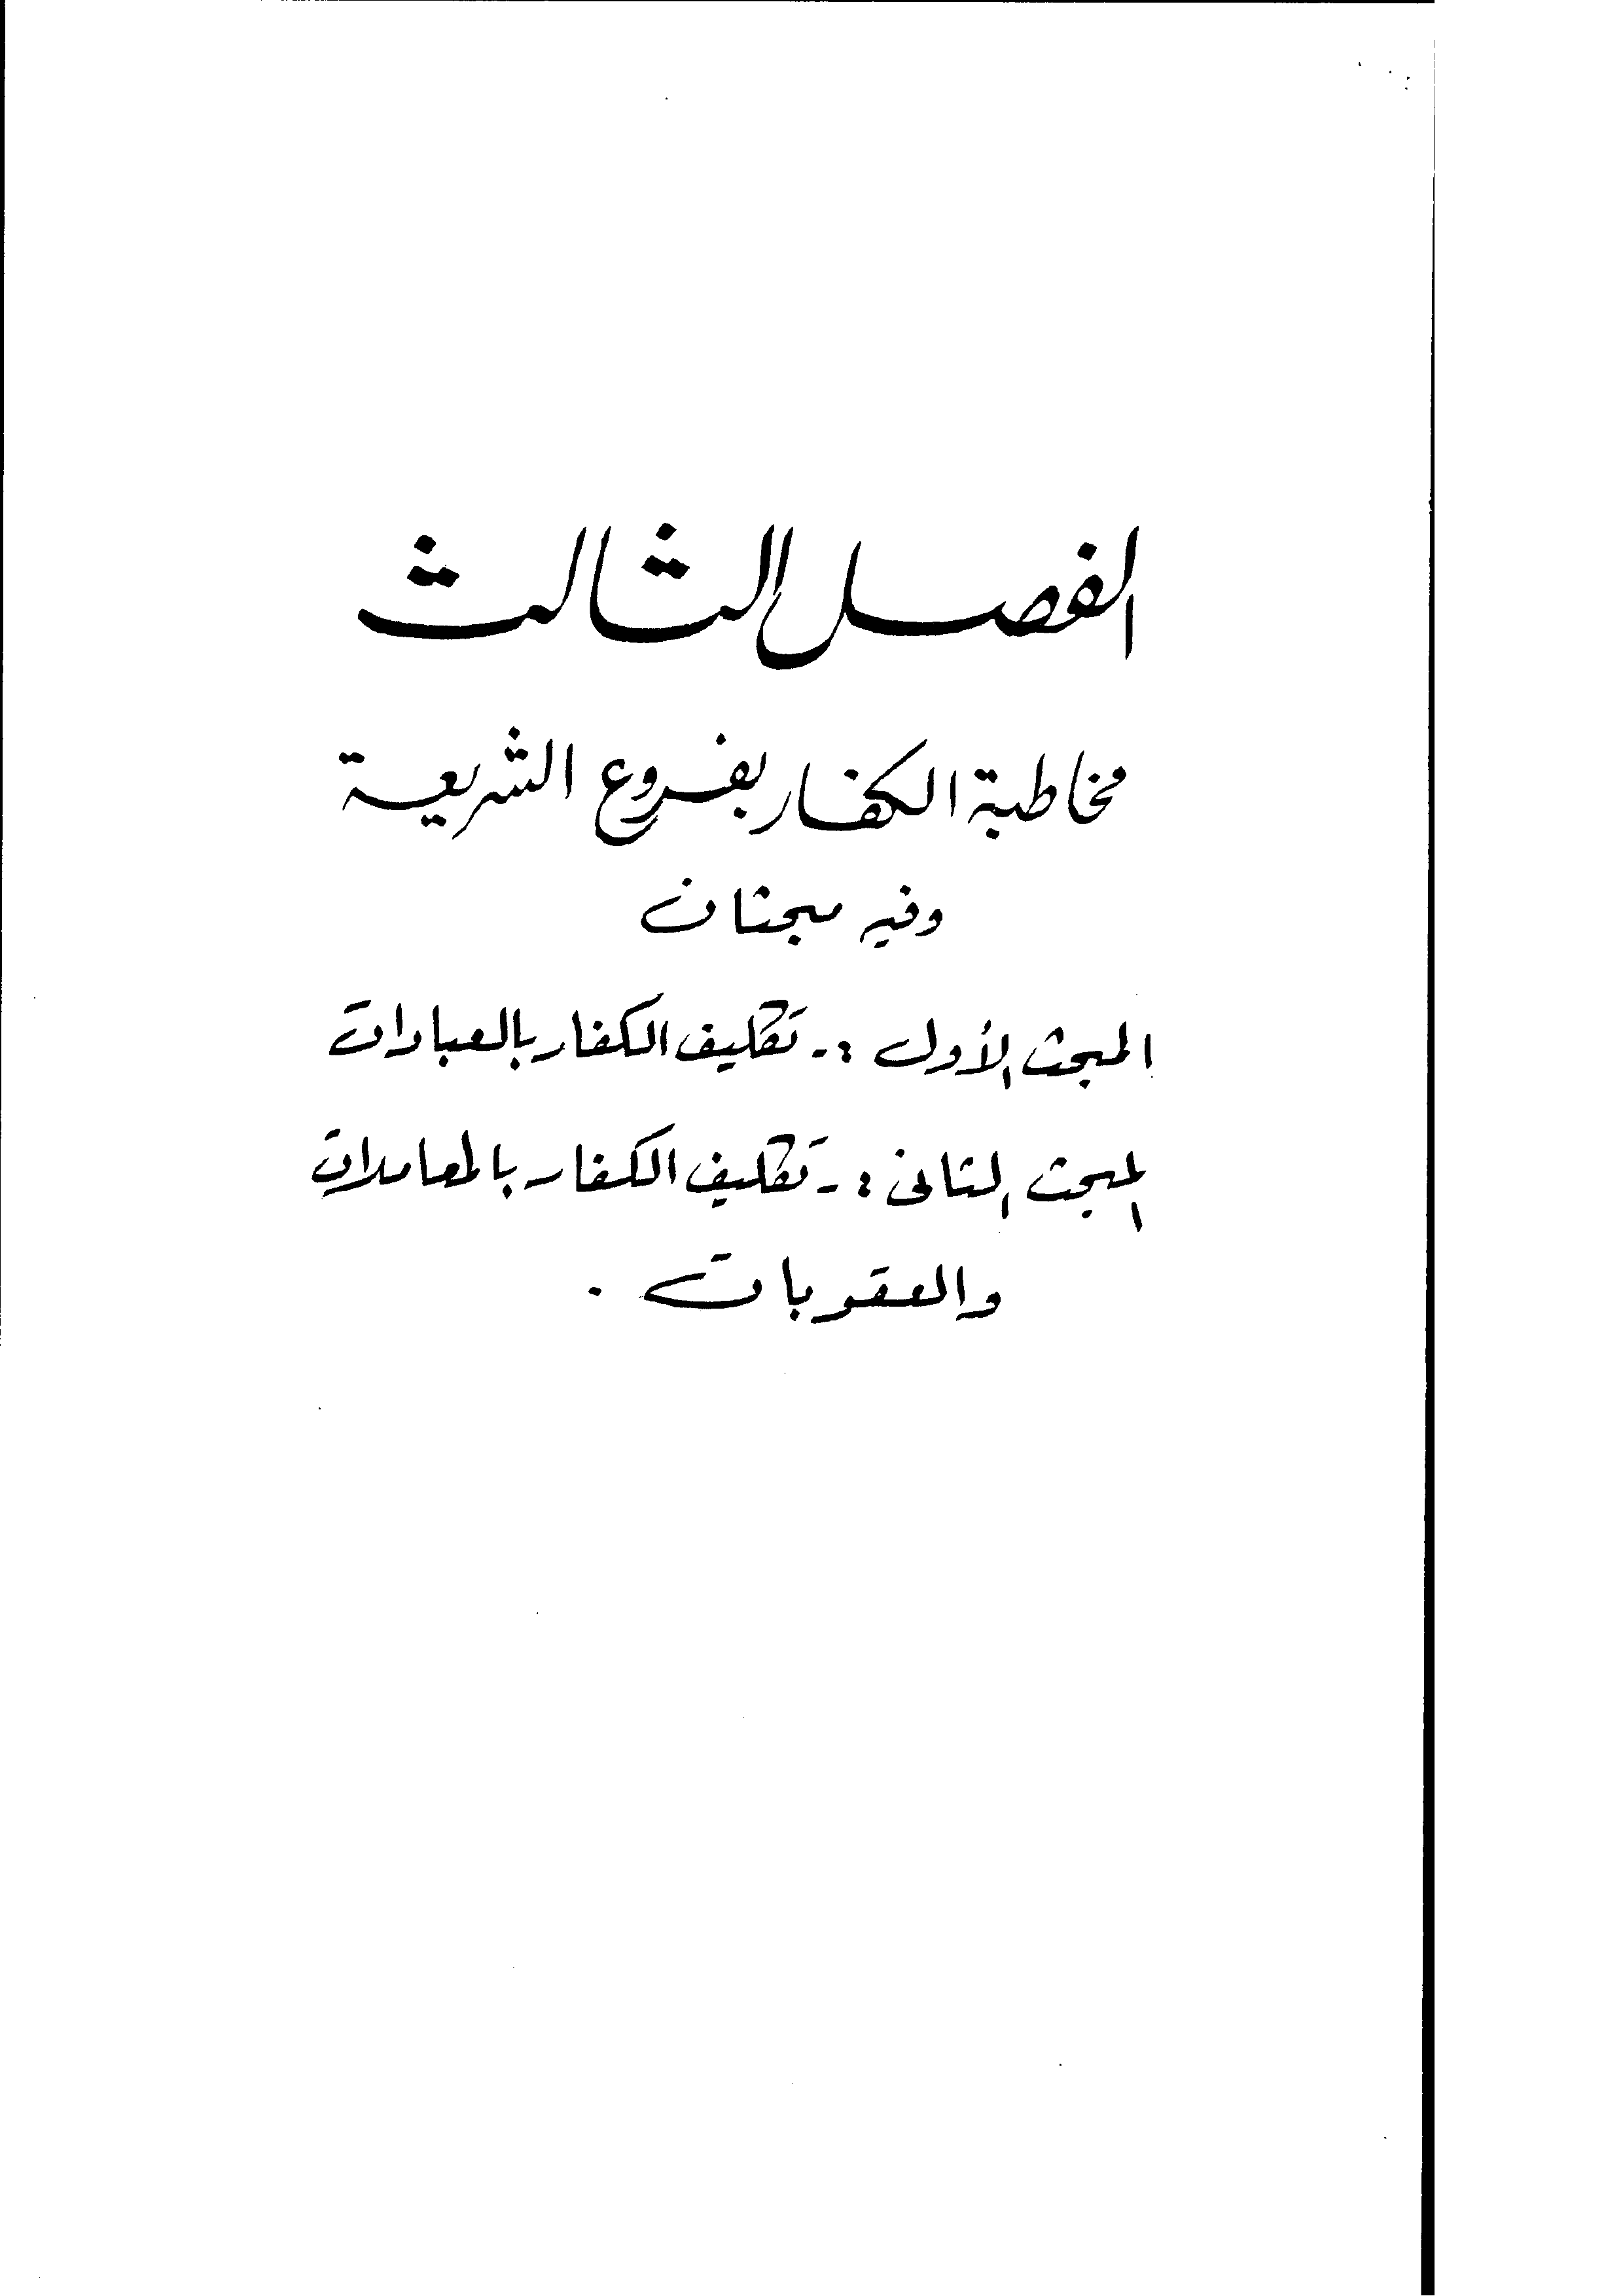 الفصل الثالث
مخاطبة الكفار بفروع الشريعة
وفيه مبحثان
المبحث الأول :- تكليف الكفار بالعبادات
المبحث الثاني :- تكليف الكفار بالمعاملات
والعقوبات .